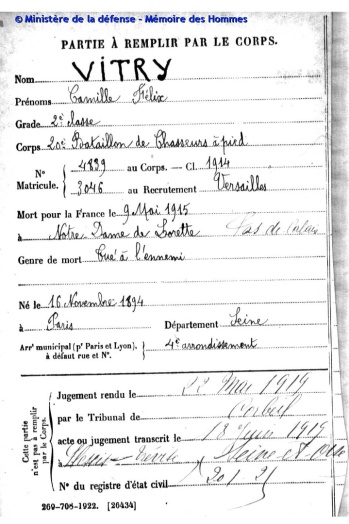 © Ministère de la défense - Mémoire des Hommes
PARTIE À REMPLIR PAR LE CORPS.
Nom VITRY
Prénoms Camille Félix
Grade 2e classe
Corps 20e Bataillon de Chasseurs à pied
N° 4839 au Corps. — Cl. 1914
Matricule. 3046 au Recrutement Versailles
Mort pour la France le 9 Mai 1915
à Notre Dame de Lorette Pas de Calais
Genre de mort Tué à l'ennemi
Né le 16 Novembre 1894
à Paris Département Seine
Arrt municipal (pr Paris et Lyon), à défaut rue et N°. 4e arrondissement
Cette partie n'est pas à remplir par le Corps.
Jugement rendu le 22 Mai 1919
par le Tribunal de Corbeil
acte ou jugement transcrit le 18 Juin 1919
à Seine et Oise
N° du registre d'état civil 201/21
269-708-1922. [26434]